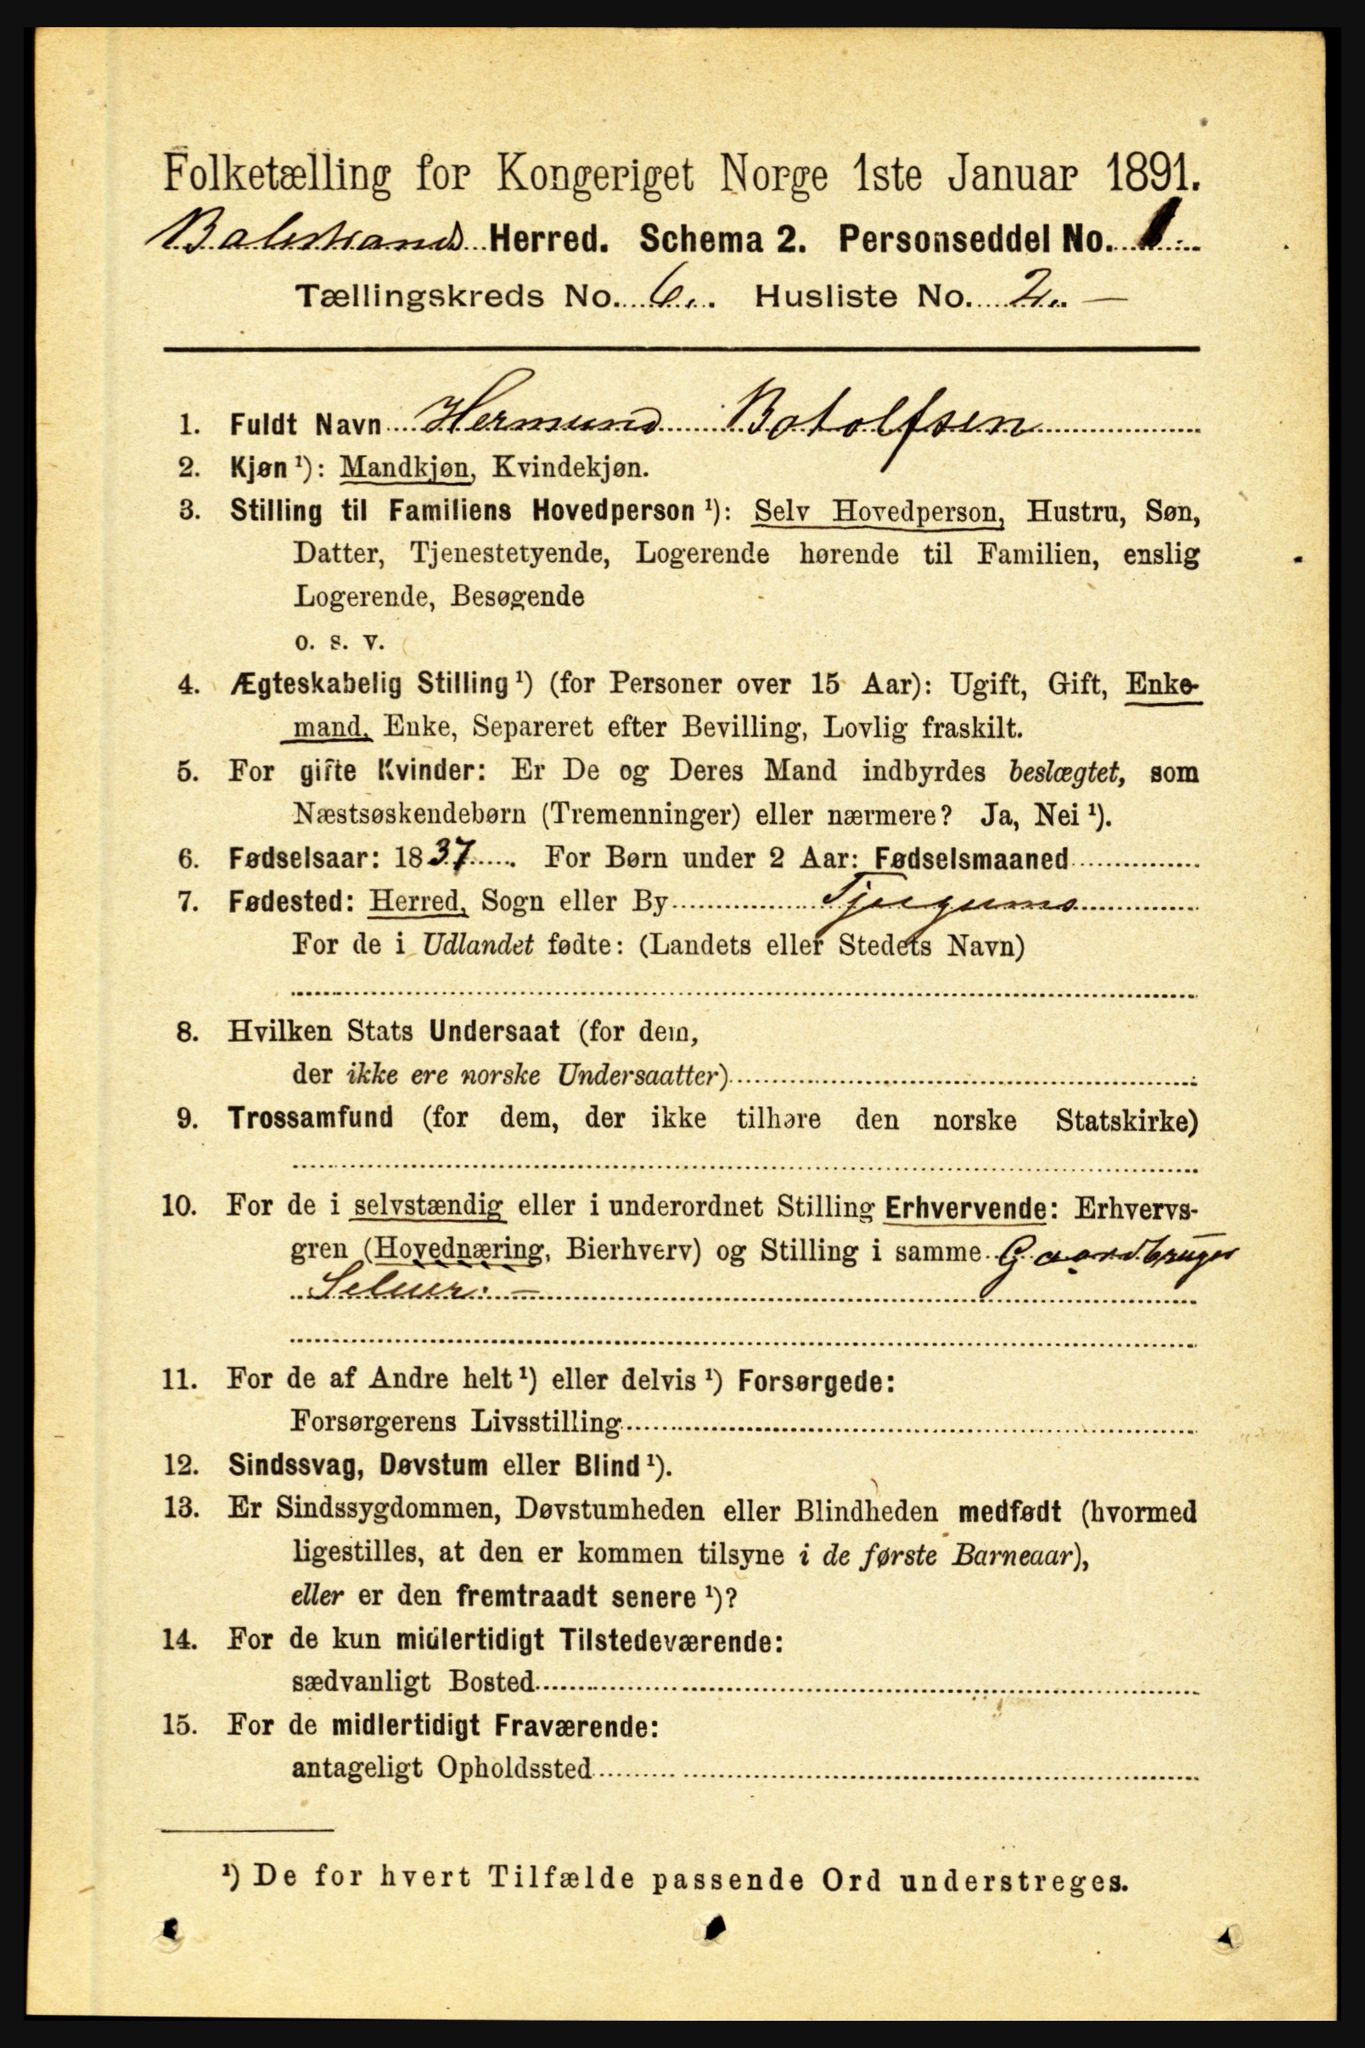 Folketælling for Kongeriget Norge 1ste Januar 1891.
Balestrands Herred. Schema 2. Personseddel No. 1
Tællingskreds No. 6. Husliste No. 2. —
1. Fuldt Navn Hermund Botolfsen
2. Kjøn ¹): Mandkjøn, Kvindekjøn.
3. Stilling til Familiens Hovedperson ¹): Selv Hovedperson, Hustru, Søn,
Datter, Tjenestetyende, Logerende hørende til Familien, enslig
Logerende, Besøgende
o. s. v.
4. Ægteskabelig Stilling ¹) (for Personer over 15 Aar): Ugift, Gift, Enke-
mand, Enke, Separeret efter Bevilling, Lovlig fraskilt.
5. For gifte Kvinder: Er De og Deres Mand indbyrdes beslægtet, som
Næstsøskendebørn (Tremenninger) eller nærmere? Ja, Nei ¹).
6. Fødselsaar: 1837. For Børn under 2 Aar: Fødselsmaaned
7. Fødested: Herred, Sogn eller By Tjugums
For de i Udlandet fødte: (Landets eller Stedets Navn)
8. Hvilken Stats Undersaat (for dem,
der ikke ere norske Undersaatter)
9. Trossamfund (for dem, der ikke tilhøre den norske Statskirke)
10. For de i selvstændig eller i underordnet Stilling Erhvervende: Erhvervs-
gren (Hovednæring, Bierhverv) og Stilling i samme Gaardbruger
Selveier. —
11. For de af Andre helt ¹) eller delvis ¹) Forsørgede:
Forsørgerens Livsstilling
12. Sindssvag, Døvstum eller Blind ¹).
13. Er Sindssygdommen, Døvstumheden eller Blindheden medfødt (hvormed
ligestilles, at den er kommen tilsyne i de første Barneaar),
eller er den fremtraadt senere ¹)?
14. For de kun midlertidigt Tilstedeværende:
sædvanligt Bosted
15. For de midlertidigt Fraværende:
antageligt Opholdssted
¹) De for hvert Tilfælde passende Ord understreges.